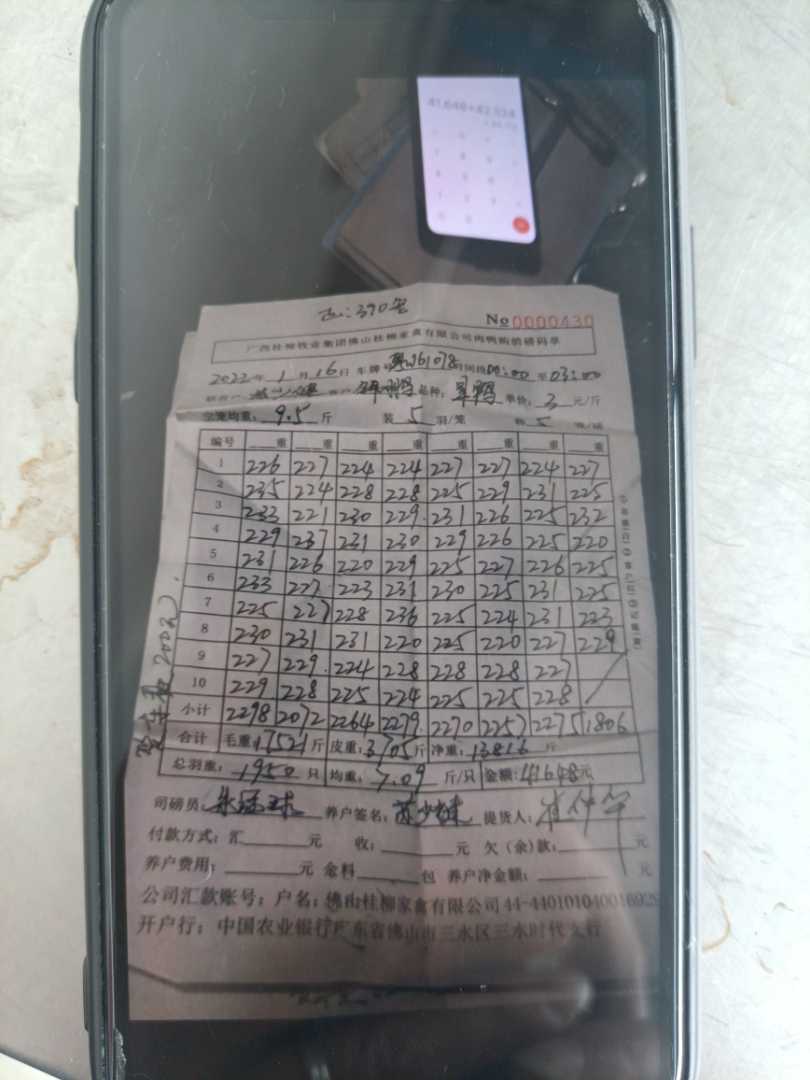 41,648+42,534
390
No 0000430
广西桂柳牧业集团佛山桂柳家禽有限公司肉鸭购销磅码单
2022年 1月 16日 车牌号 时间段00:00至03:00
品种： 单价：3元/斤
空笼均重：9.5斤 装5羽/笼 5
编号 重 重 重 重 重 重 重 重
1 226 227 224 224 227 227 224 227
2 235 224 228 228 225 229 231 225
3 233 221 230 229 231 226 225 232
4 229 237 231 230 229 226 225 220
5 231 226 220 229 225 227 226 225
6 233 227 223 231 230 225 231 225
7 225 227 228 236 225 224 231 223
8 230 231 231 220 225 220 227 229
9 227 229 224 228 228 228 227
10 229 228 225 224 225 225 228
小计 2298 2072 2264 2279 2270 2257 2275 1806
合计 毛重：17521斤 皮重：3705斤 净重：13816斤
总羽重：1950只 均重：7.09斤/只 金额：41648元
司磅员： 养户签名： 提货人：
付款方式：汇 元 收： 元 欠（余）款： 元
养户费用： 元 金料 包 养户净金额： 元
公司汇款账号：户名：佛山桂柳家禽有限公司44-440101040016929
开户行：中国农业银行广东省佛山市三水区三水时代支行